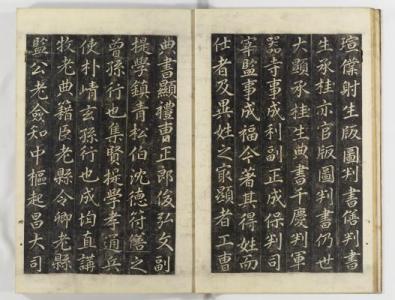 瑄僕射生版圖判書僐判書
生承桂亦官版圖判書仍世
大顯承桂生典書千慶判軍
器寺事成利副正成保判司
宰監事成福今著其得姓而
仕者及異姓之家顯者工曹
典書顯禮曹正郎俊弘文副
提學鎮青松伯沈德符僐之
曾孫行也集賢提學孝通兵
使朴崝玄孫行也成均直講
牧老典籍臣老縣令卿老縣
監公老僉知中樞起昌大司